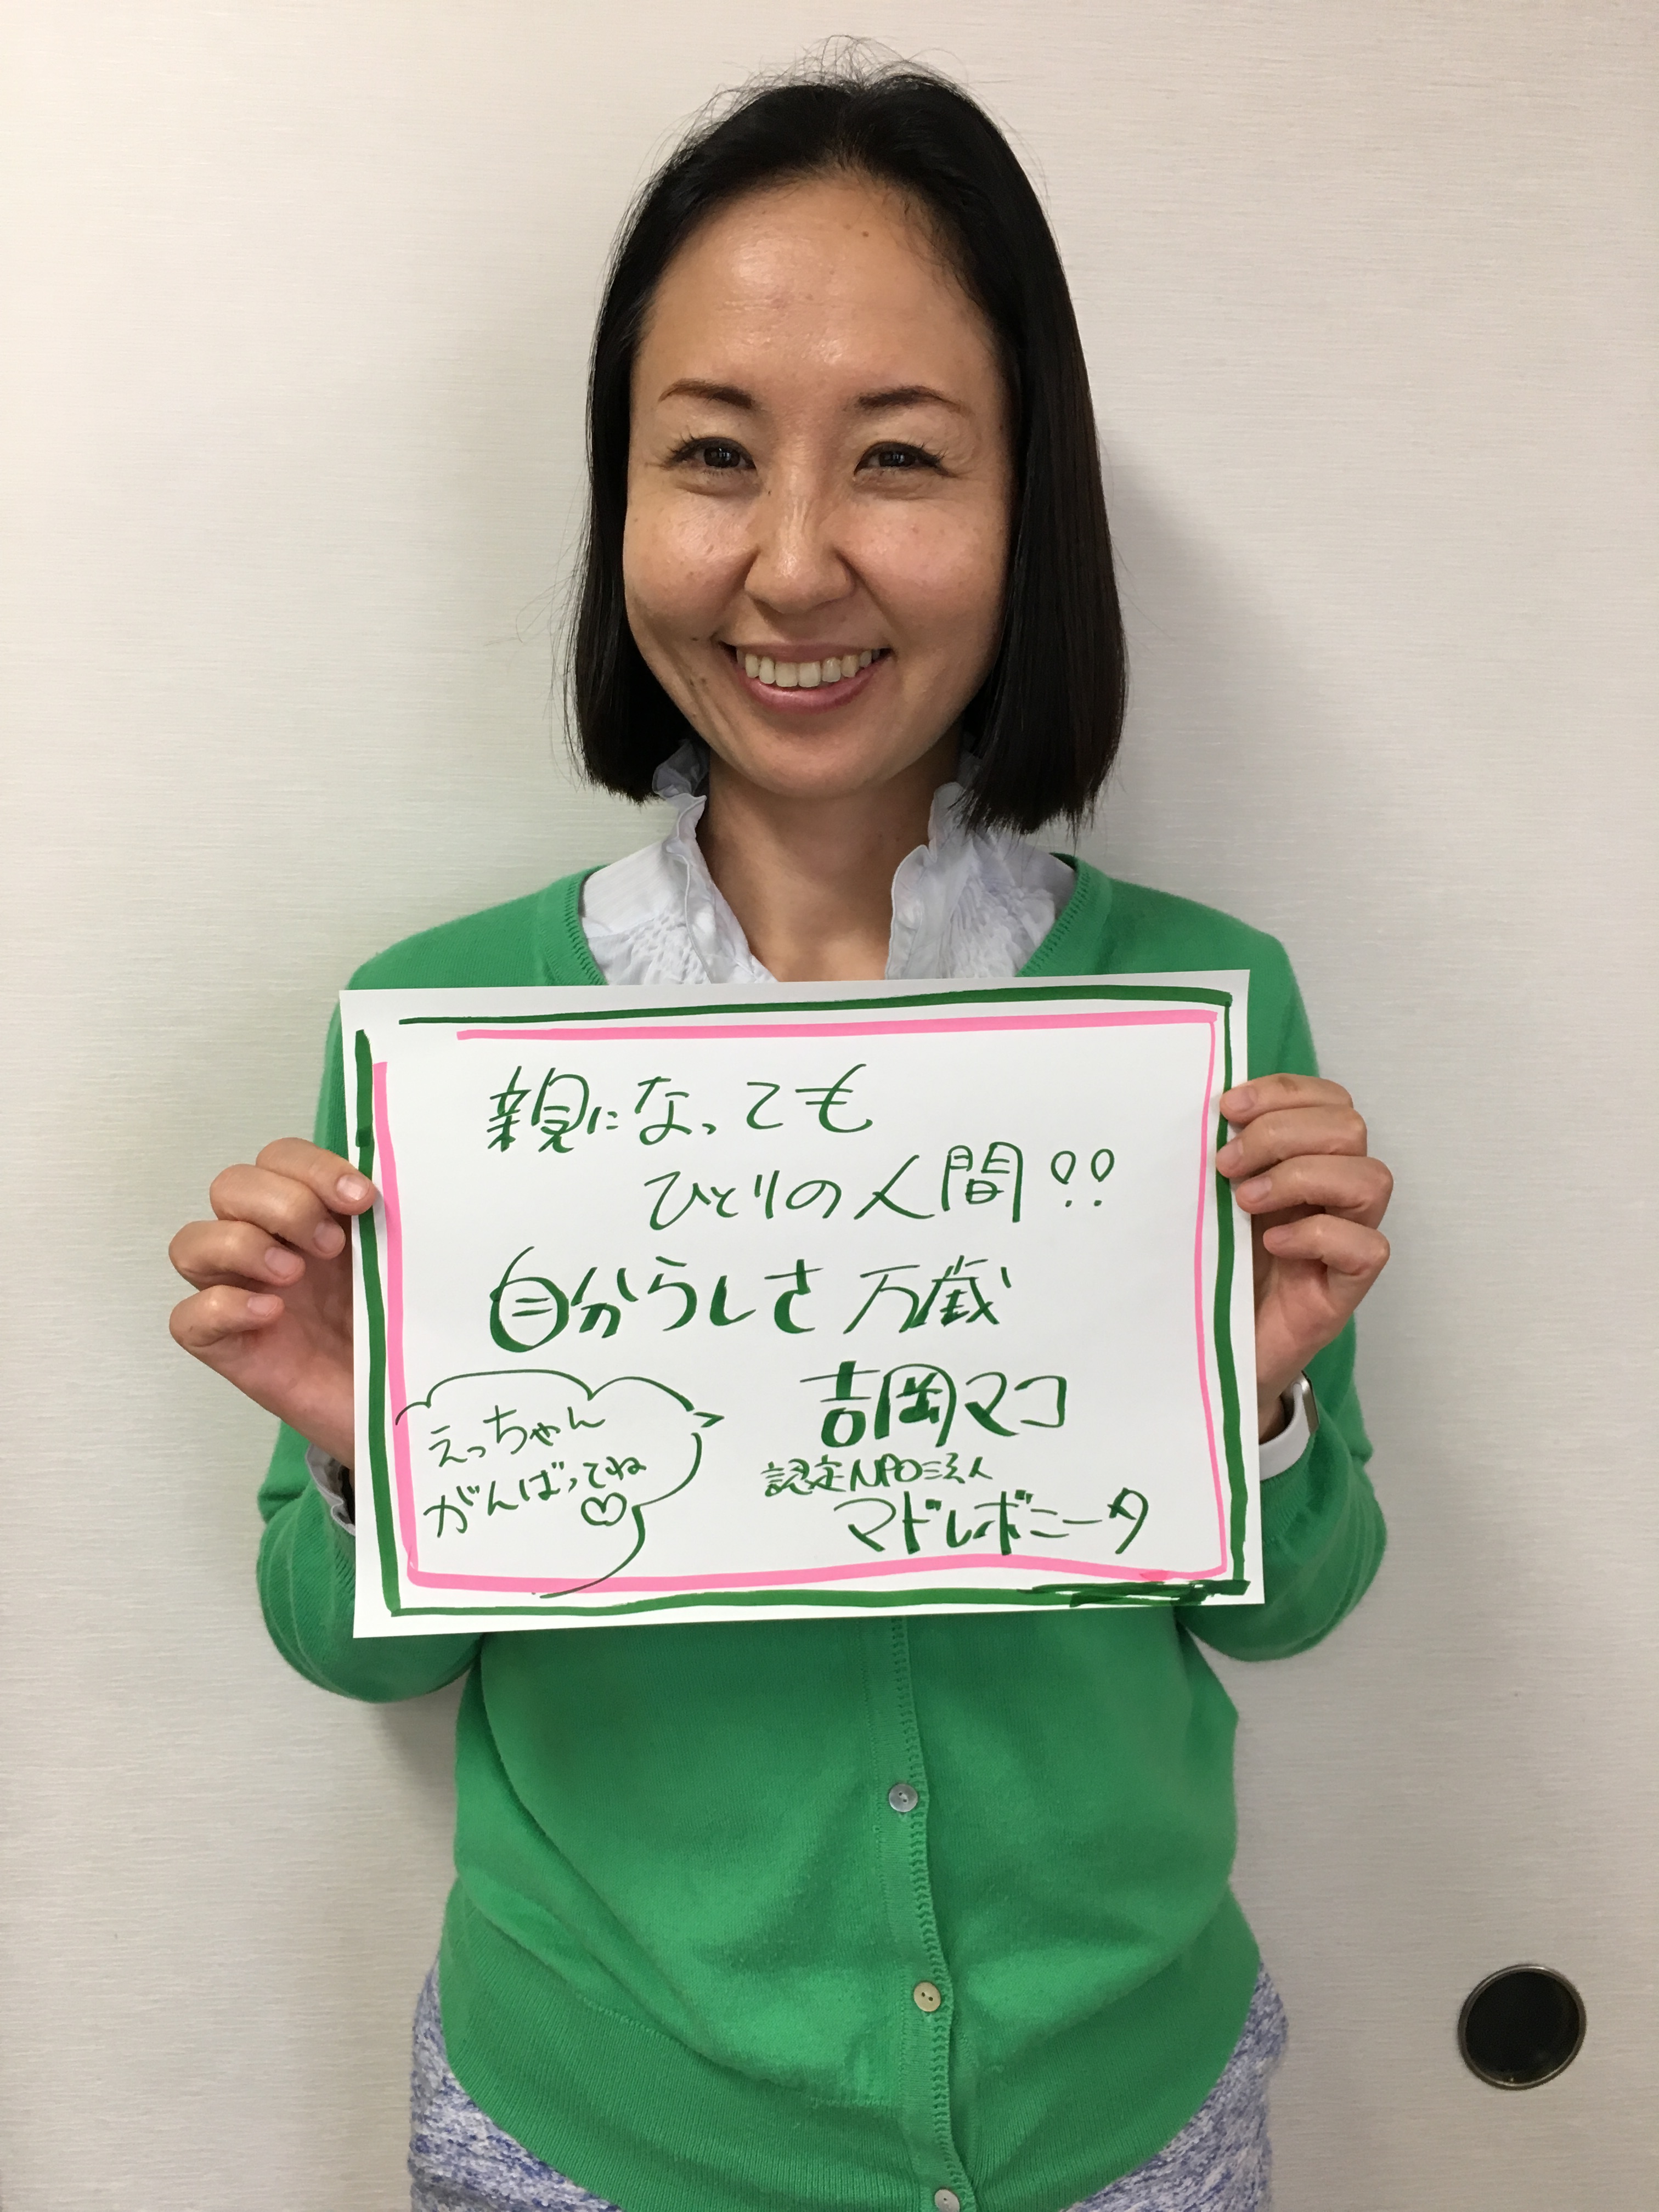 親になっても
ひとりの人間!!
自分らしさ万歳
吉岡マコ
認定NPO法人
マドレボニータ
えっちゃん
がんばってね